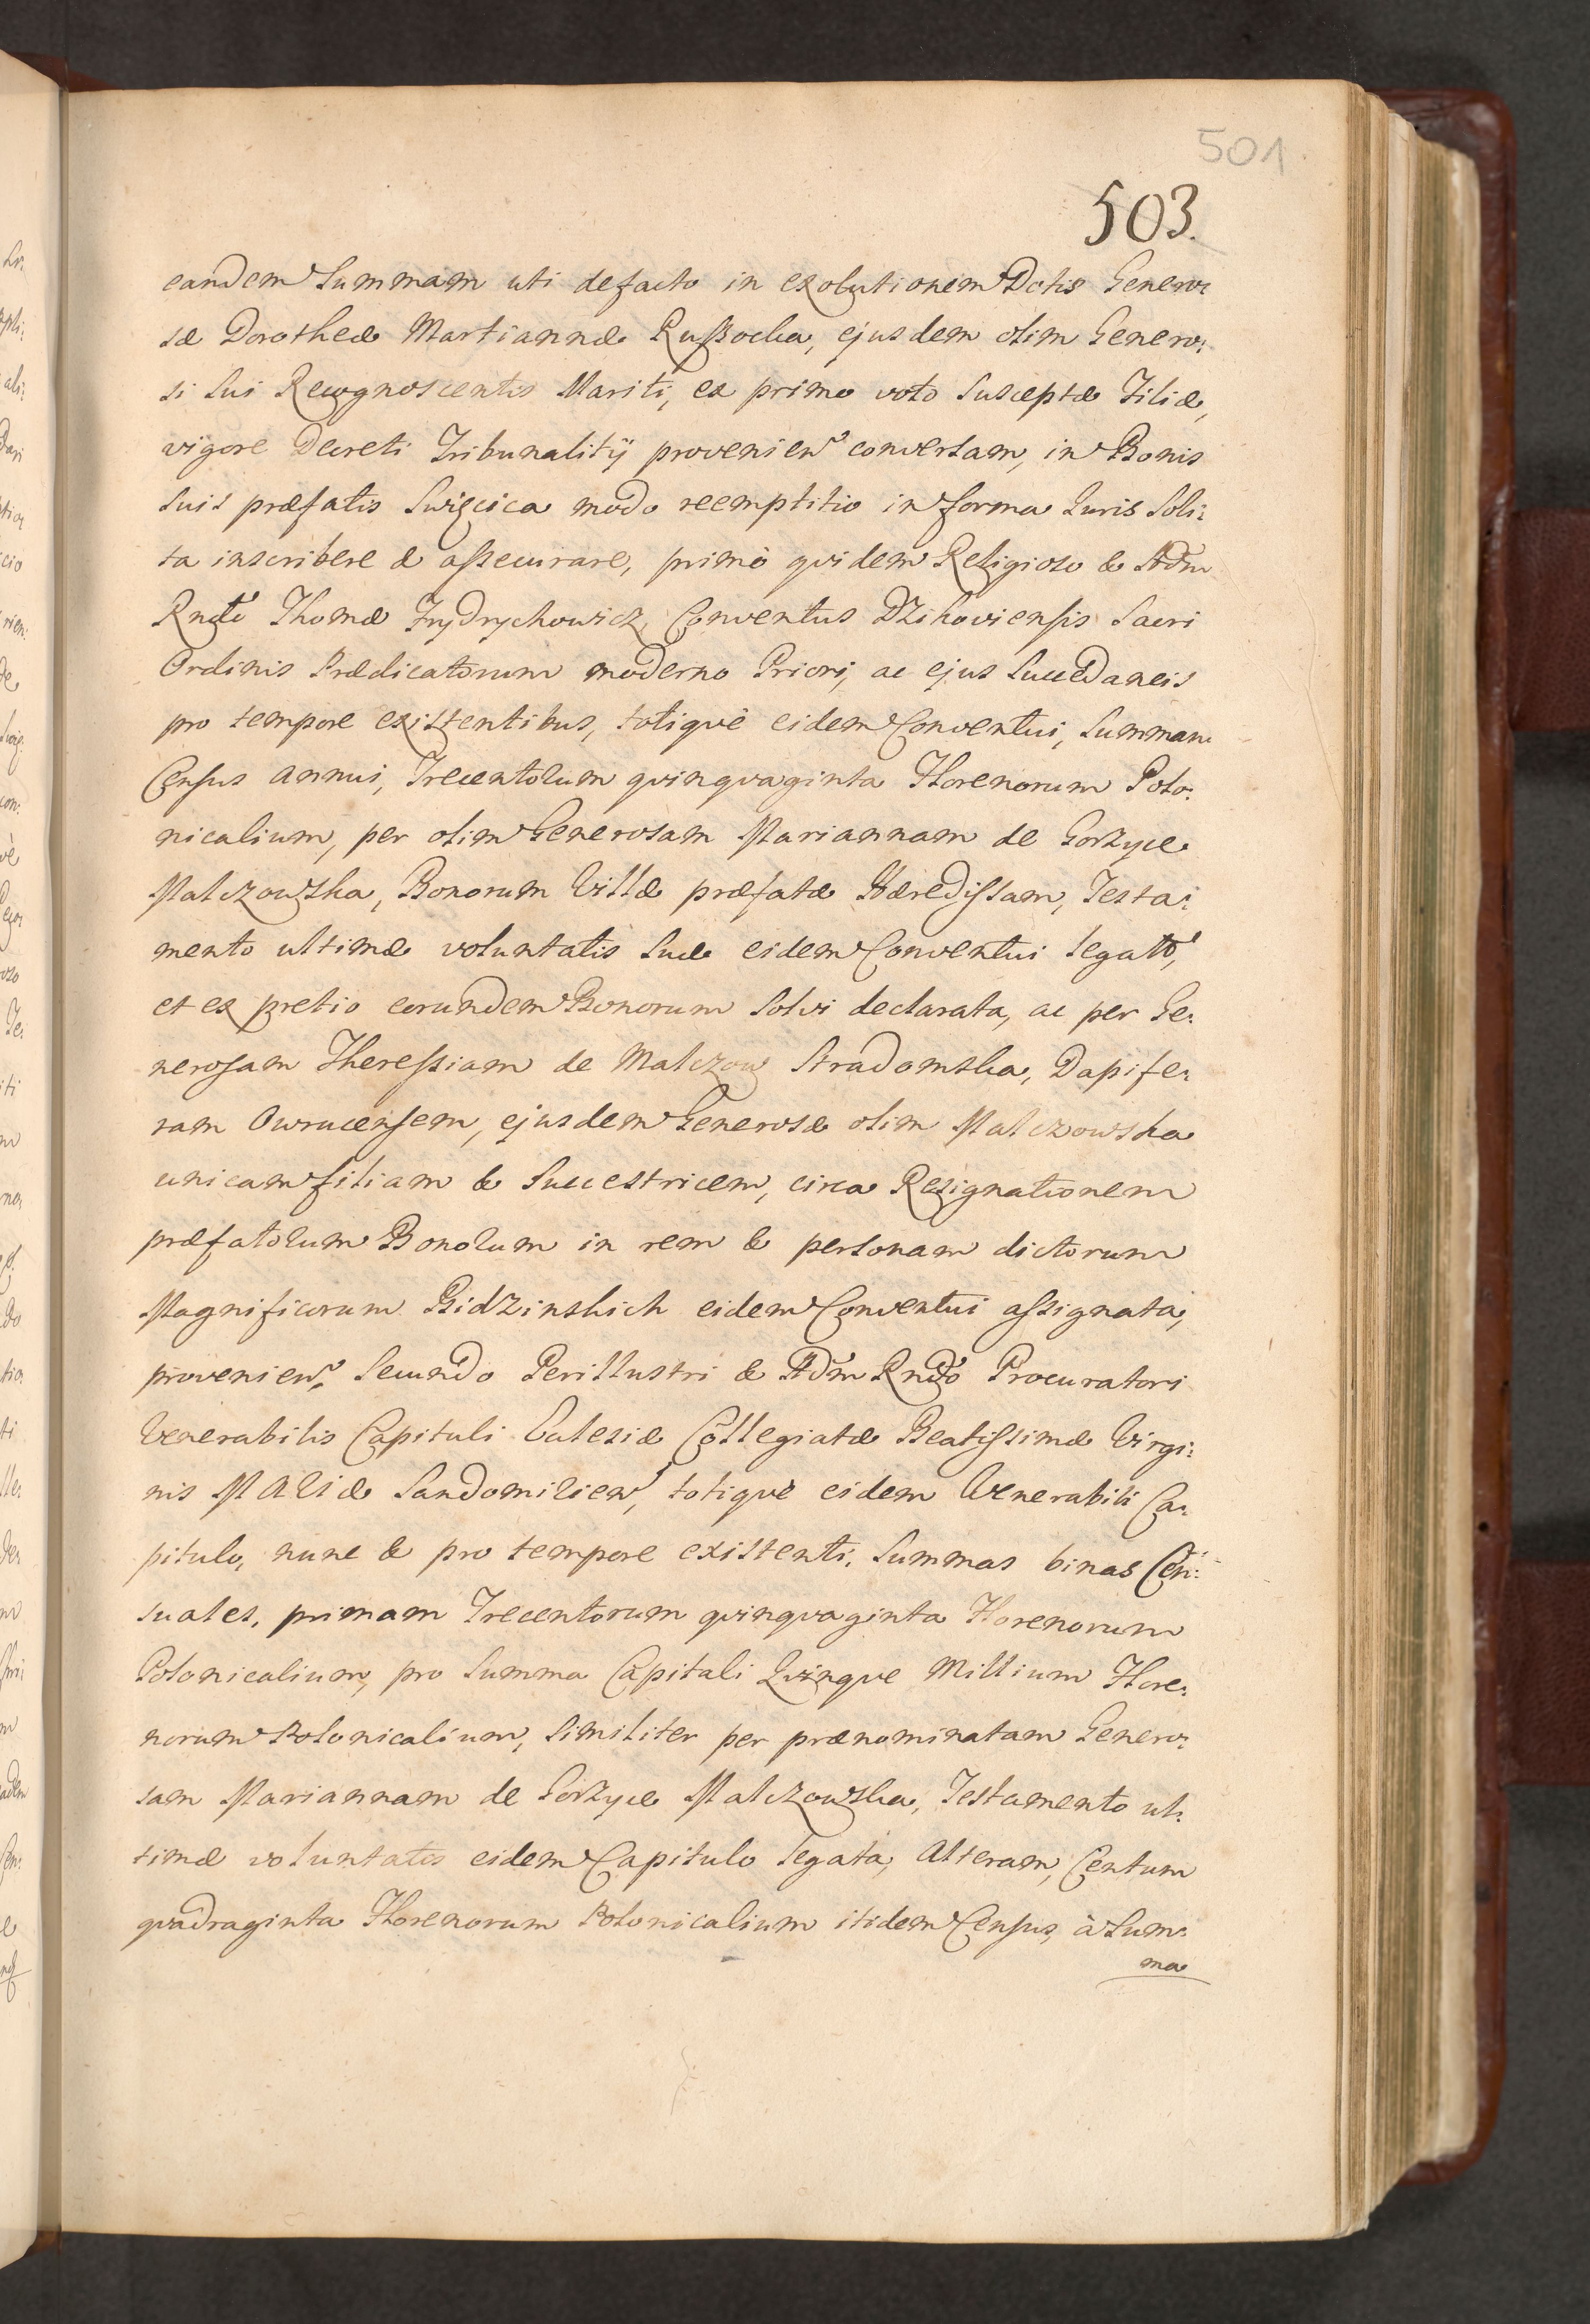 501
503.
eandem Summam uti defacto in exolutionem Dotis Genero:
sæ Dorotheæ Martiannæ Rußocka, ejusdem olim Genero:
si sui Recognoscentis Mariti, ex primo voto susceptæ Filiæ,
vigore Decreti Tribunalitÿ provenien conversam, in Bonis
suis præfatis Swizcica modo reemptitio in forma Iuris soli:
ta inscribere & assecurare, primò qvidem Religioso & Adm
Rndo Thomæ Frydrychowicz, Conventus Dzikoviensis Sacri
Ordinis Prædicatorum moderno Priori, ac ejus Succedaneis
pro tempore existentibus, totiqvè eidem Conventui, Summam
Census annui, Trecentorum qvinqvaginta Florenorum Polo:
nicalium, per olim Generosam Mariannam de Gorzyce
Malczowska, Bonorum Villæ præfatæ Hæredissam, Testa:
mento ultimæ voluntatis suæ eidem Conventui legato,
et ex pretio eorundem Bonorum solvi declarata, ac per Ge:
nerosam Theressiam de Malczow Stradomska, Dapife:
ram Owrucensem, ejusdem Generosæ olim Malczowska
unicam filiam & Successtricem, circa Resignationem
præfatorum Bonorum in rem & personam dictorum
Magnificorum Bidzinskich eidem Conventui assignata,
provenien, Secundo Perillustri & Adm Rndo Procuratori
Venerabilis Capituli Eclesiæ Collegiatæ Beatissimæ Virgi:
nis MARIæ Sandomirien, totiqvè eidem Venerabili Ca:
pitulo, nunc & pro tempore existenti, Summas binas Cen:
suales, primam Trecentorum qvinqvaginta Florenorum
Polonicalium, pro Summa Capitali Qvinqve Millium Flore:
norum Polonicalium, similiter per prænominatam Genero:
sam Mariannam de Gorzyce Malczowska, Testamento ul:
timæ voluntatis eidem Capitulo legata, Alteram, Centum
qvadraginta Florenorum Polonicalium itidem Census, à Sum:
ma